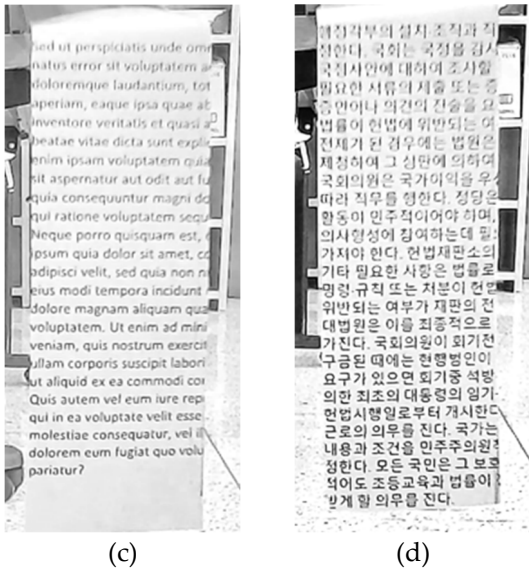 Sed ut perspiciatis unde omn
natus error sit voluptatem a
doloremque laudantium, tot
aperiam, eaque ipsa quae ab
inventore veritatis et quasi a
beatae vitae dicta sunt expli
enim ipsam voluptatem quia
sit aspernatur aut odit aut fu
quia consequuntur magni do
qui ratione voluptatem sequ
Neque porro quisquam est,
ipsum quia dolor sit amet, co
adipisci velit, sed quia non n
eius modi tempora incidunt
dolore magnam aliquam qua
voluptatem. Ut enim ad mini
veniam, quis nostrum exercit
ullam corporis suscipit labori
ut aliquid ex ea commodi co
Quis autem vel eum iure rep
qui in ea voluptate velit esse
molestiae consequatur, vel il
dolorem eum fugiat quo volu
pariatur?
(c)
행정각부의 설치·조직과 직
정한다. 국회는 국정을 감사
국정사안에 대하여 조사할
필요한 서류의 제출 또는 증
증언이나 의견의 진술을 요
법률이 헌법에 위반되는 여
전제가 된 경우에는 법원은
제청하여 그 심판에 의하여
국회의원은 국가이익을 우선
따라 직무를 행한다. 정당은
활동이 민주적이어야 하며,
의사형성에 참여하는데 필요
가져야 한다. 헌법재판소의
기타 필요한 사항은 법률로
명령·규칙 또는 처분이 헌법
위반되는 여부가 재판의 전
대법원은 이를 최종적으로
가진다. 국회의원이 회기전
구금된 때에는 현행범인이
요구가 있으면 회기중 석방
의한 최초의 대통령의 임기
헌법시행일로부터 개시한다
근로의 의무를 진다. 국가는
내용과 조건을 민주주의원칙
정한다. 모든 국민은 그 보호
적어도 초등교육과 법률이
받게 할 의무를 진다.
(d)